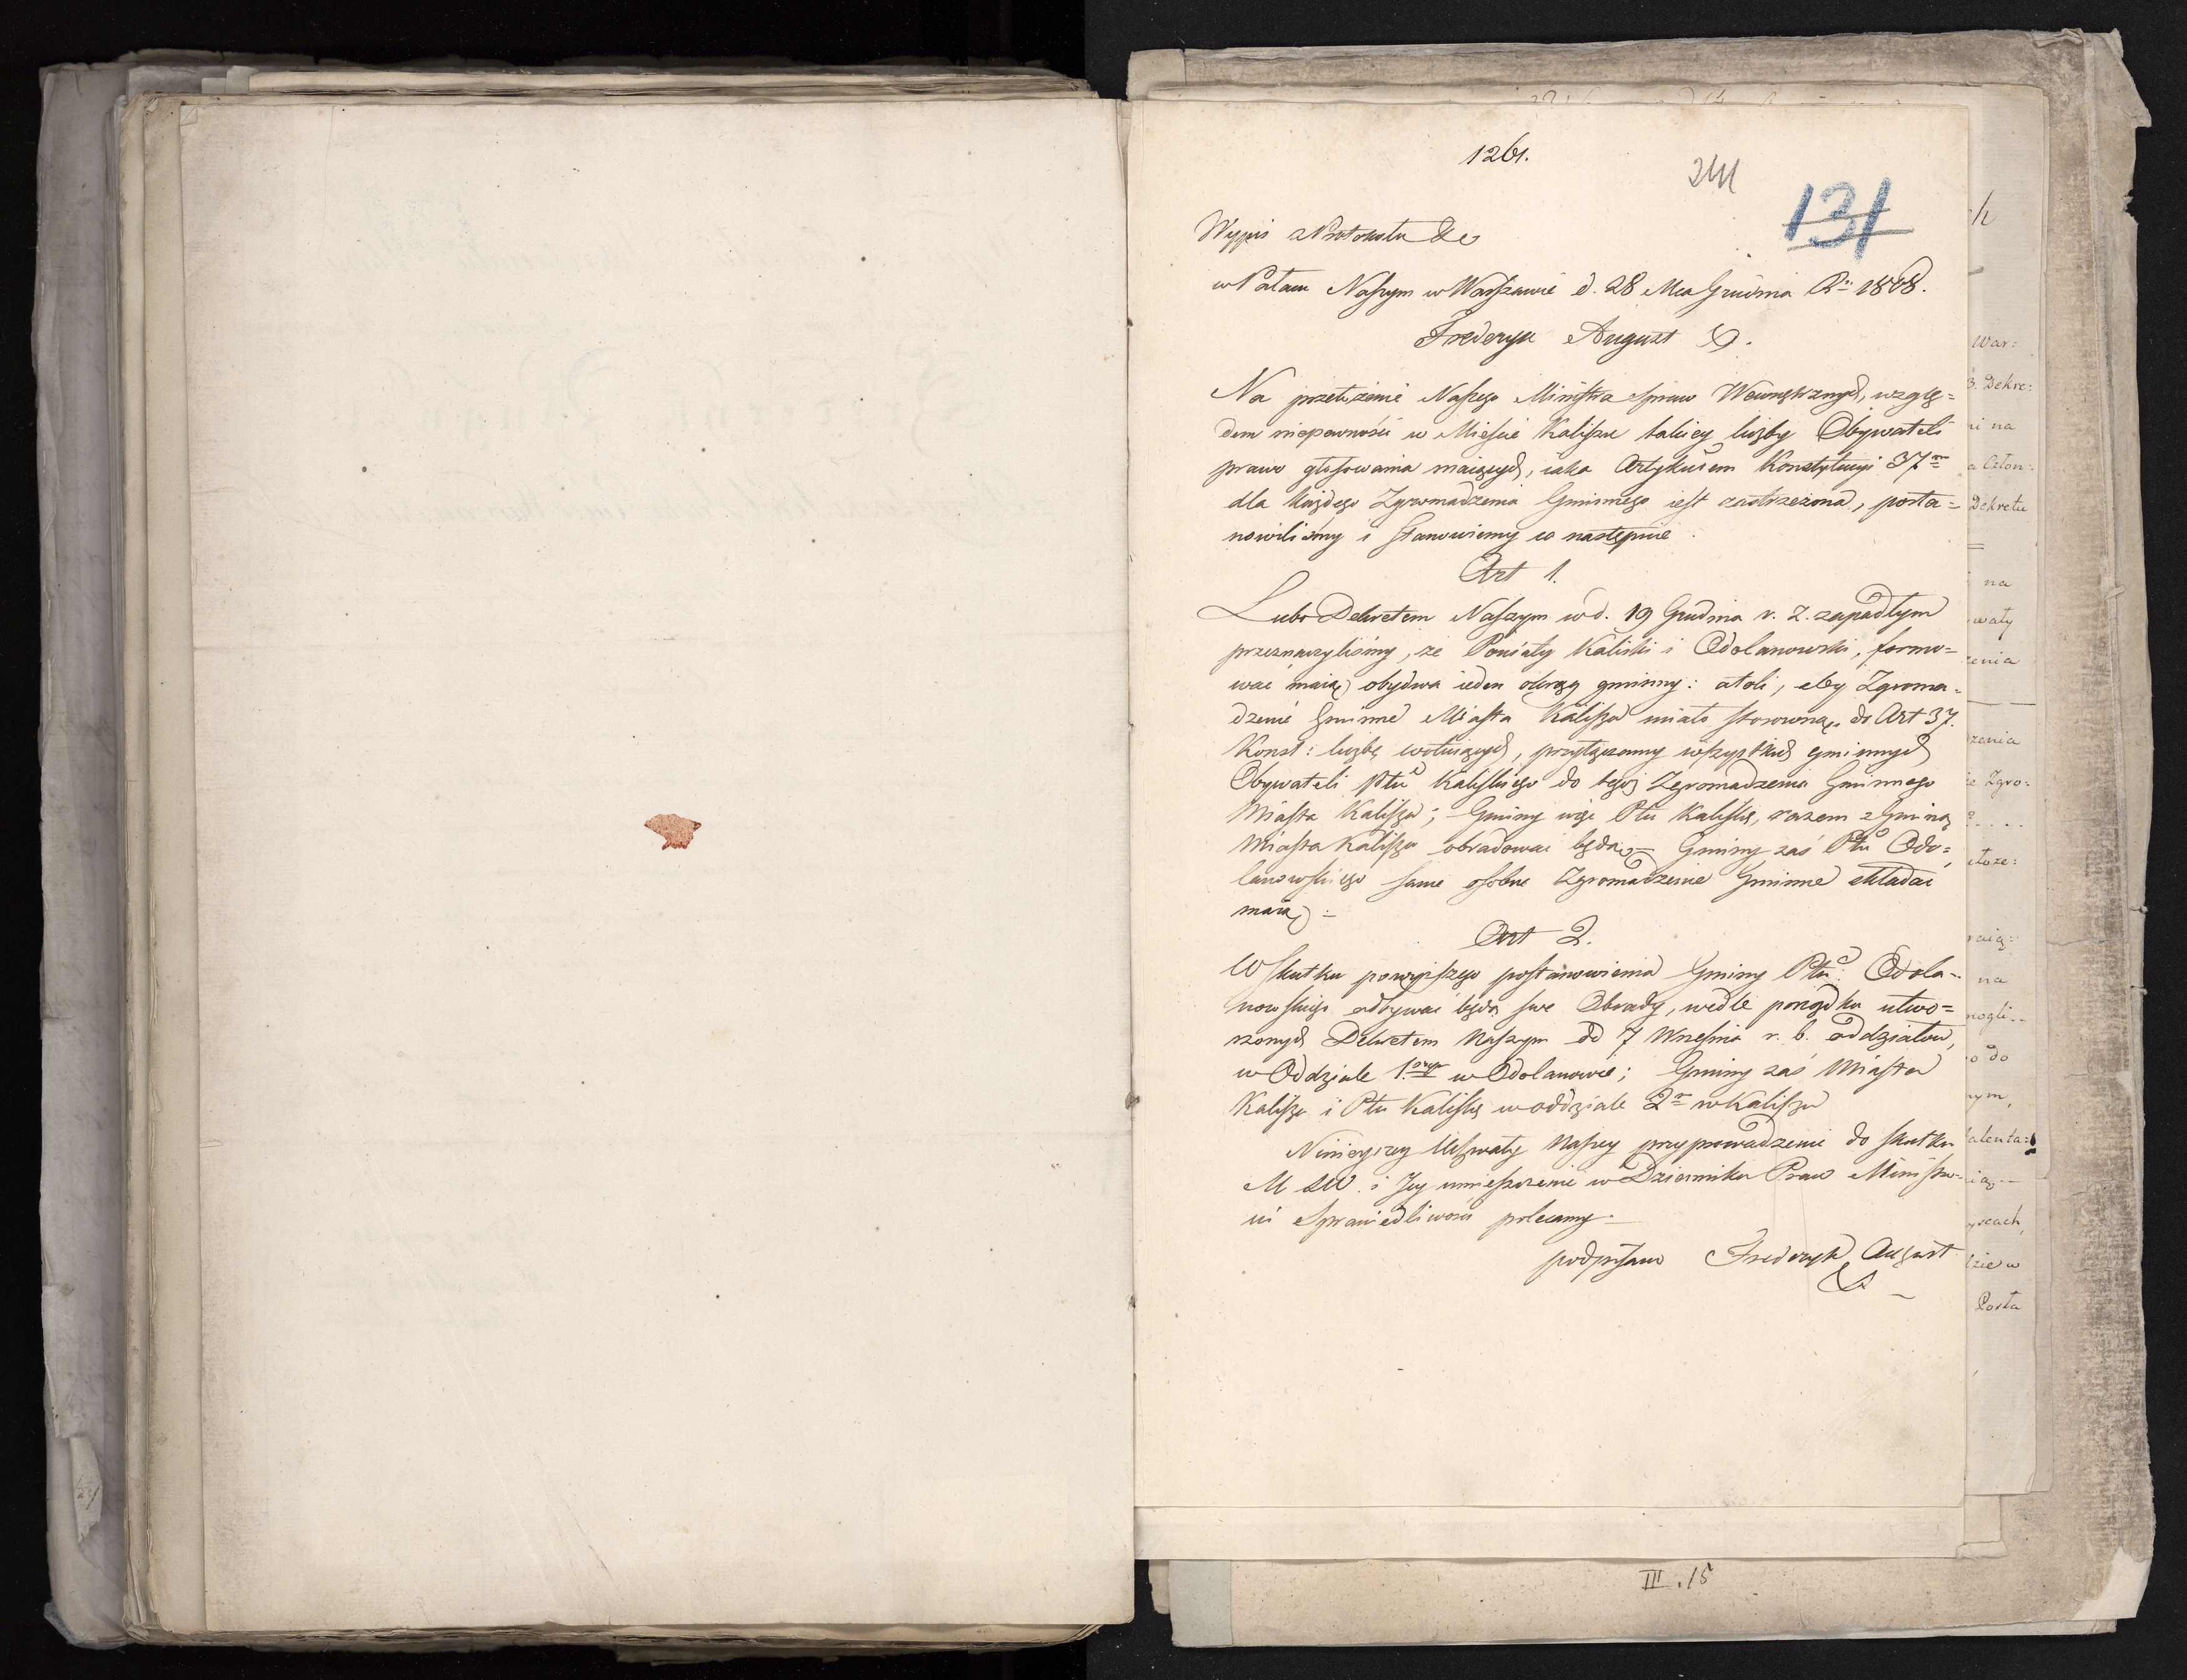 1261.
241
131
Wypis z Protokołu &c
w Pałacu Naszym w Warszawie d. 28 Mca Grudnia Ru 1808.
Fryderyk August &.
Na przełożenie Naszego Ministra Spraw Wewnętrznych, wzglę=
dem niepewności w Mieście Kaliszu takiey liczby Obywateli
prawo głosowania maiących, iaka Artykułem Konstytucyi 37m
dla każdego Zgromadzenia Gminnego iest zastrzeżona, posta=
nowiliśmy i Stanowiemy co następuie
Art 1.
Lubo Dekretem Naszym w d. 19 Grudnia r. z. zapadłym
przeznaczyliśmy, że Powiaty Kaliski i Odolanowski, formo=
wać maią obydwa ieden okrąg gminny: atoli, aby Zgroma=
dzenie Gminne Miasta Kalisza miało stosowną do Art 37.
Konst: liczbę wotuiących, przyłączamy wszystkich gminnych
Obywateli Ptu Kaliskiego do tegoż Zgromadzenia Gminnego
Miasta Kalisza; Gminy więc Ptu Kalisk, razem z Gminą
Miasta Kalisza obradować będą = Gminy zaś Ptu Odo=
lanowskiego same osobne Zgromadzenie Gminne składać
maią =
Art 2.
W skutku powyższego postanowienia Gminy Ptu Odola=
nowskiego odbywać będą swe Obrady, wedle porządku utwo=
rzonych Dekretem Naszym dd 7 Września r. b. oddziałów,
w Oddziale 1. w Odolanowie; Gminy zaś Miasta
Kalisza i Ptu Kalisk w oddziale 2m w Kaliszu
Ninieyszey Uchwały Naszey przyprowadzenie do skutku
M SW. i Jey umieszczenie w Dzienniku Praw Ministro=
wi Sprawiedliwości polecamy.
podpisano Fryderyk August
&
III.15
War:
Dekre:
na
Człon:
Dekretu
na
wały
zenia
Zgro:
na
mogli
do
Posta